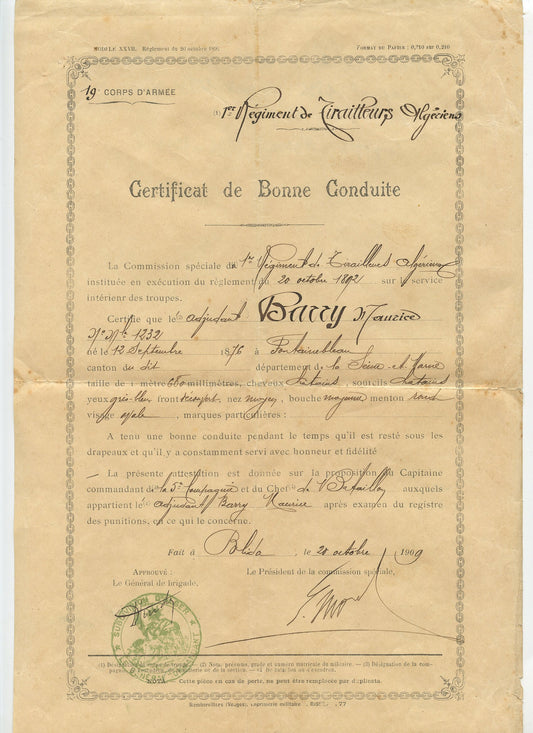 MODÈLE XXVII. Règlement du 20 octobre
FORMAT DU PAPIER : 0,310 sur 0,210
19e CORPS D'ARMÉE
(1) 1er Régiment de Tirailleurs Algériens
Certificat de Bonne Conduite
La Commission spéciale du 1er Régiment de Tirailleurs Algériens
instituée en exécution du règlement du 20 octobre 1892 sur le service
intérieur des troupes.
Certifie que le adjudant Barry Maurice
No Mle 1232
né le 12 Septembre 1876 à Fontainebleau
canton du dit département de la Seine-et-Marne
taille de 1 mètre 660 millimètres, cheveux châtains, sourcils châtains
yeux gris-bleu front nez moyen, bouche moyenne menton rond
visage ovale, marques particulières :
A tenu une bonne conduite pendant le temps qu'il est resté sous les
drapeaux et qu'il y a constamment servi avec honneur et fidélité
La présente attestation est donnée sur la proposition du Capitaine
commandant de la 5e Compagnie et du Chef de Bataillon auxquels
appartient le adjudant Barry Maurice après examen du registre
des punitions, en ce qui le concerne.
Fait à Blida, le 20 octobre 1909
APPROUVÉ :
Le Général de brigade,
Le Président de la commission spéciale,
(1) Désignation du corps de troupe. — (2) Nom, prénoms, grade et numéro matricule du militaire. — (3) Désignation de la com-
pagnie, de l'escadron, de la batterie ou de la section. — (4) De bataillon ou d'escadron.
NOTA — Cette pièce en cas de perte, ne peut être remplacée par duplicata.
Rambervillers (Vosges), Imprimerie militaire